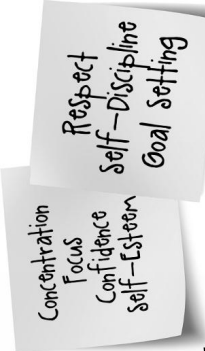 Respect
Self-Discipline
Goal Setting
Concentration
Focus
Confidence
Self-Esteem